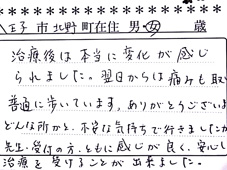 王子市北野町在住 男・女 歳
治療後は本当に変化が感じ
られました。翌日からは痛みも取
普通に歩いています。ありがとうございま
どんな所かと、不安な気持ちで行きましたが
先生、受付の方、ともに感じが良く、安心し
治療を受けることが出来ました。